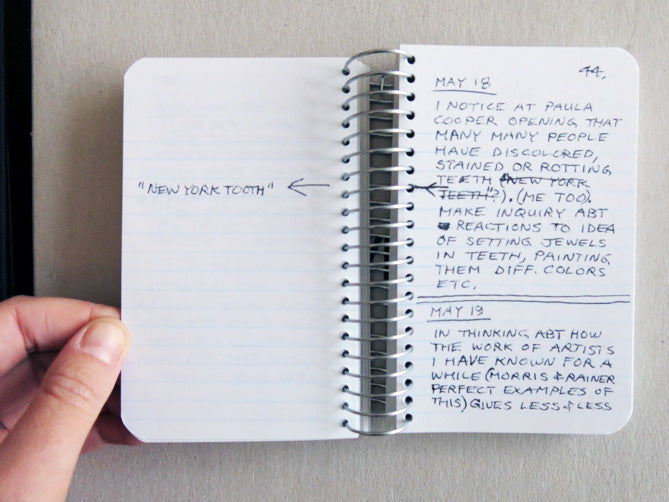 "NEW YORK TOOTH" ←
44.
MAY 18
I NOTICE AT PAULA
COOPER OPENING THAT
MANY MANY PEOPLE
HAVE DISCOLORED,
STAINED OR ROTTING
TEETH (NEW YORK
TEETH"?). (ME TOO).
MAKE INQUIRY ABT
REACTIONS TO IDEA
OF SETTING JEWELS
IN TEETH, PAINTING
THEM DIFF. COLORS
ETC.
MAY 19
IN THINKING ABT HOW
THE WORK OF ARTISTS
I HAVE KNOWN FOR A
WHILE (MORRIS & RAINER
PERFECT EXAMPLES OF
THIS) GIVES LESS & LESS